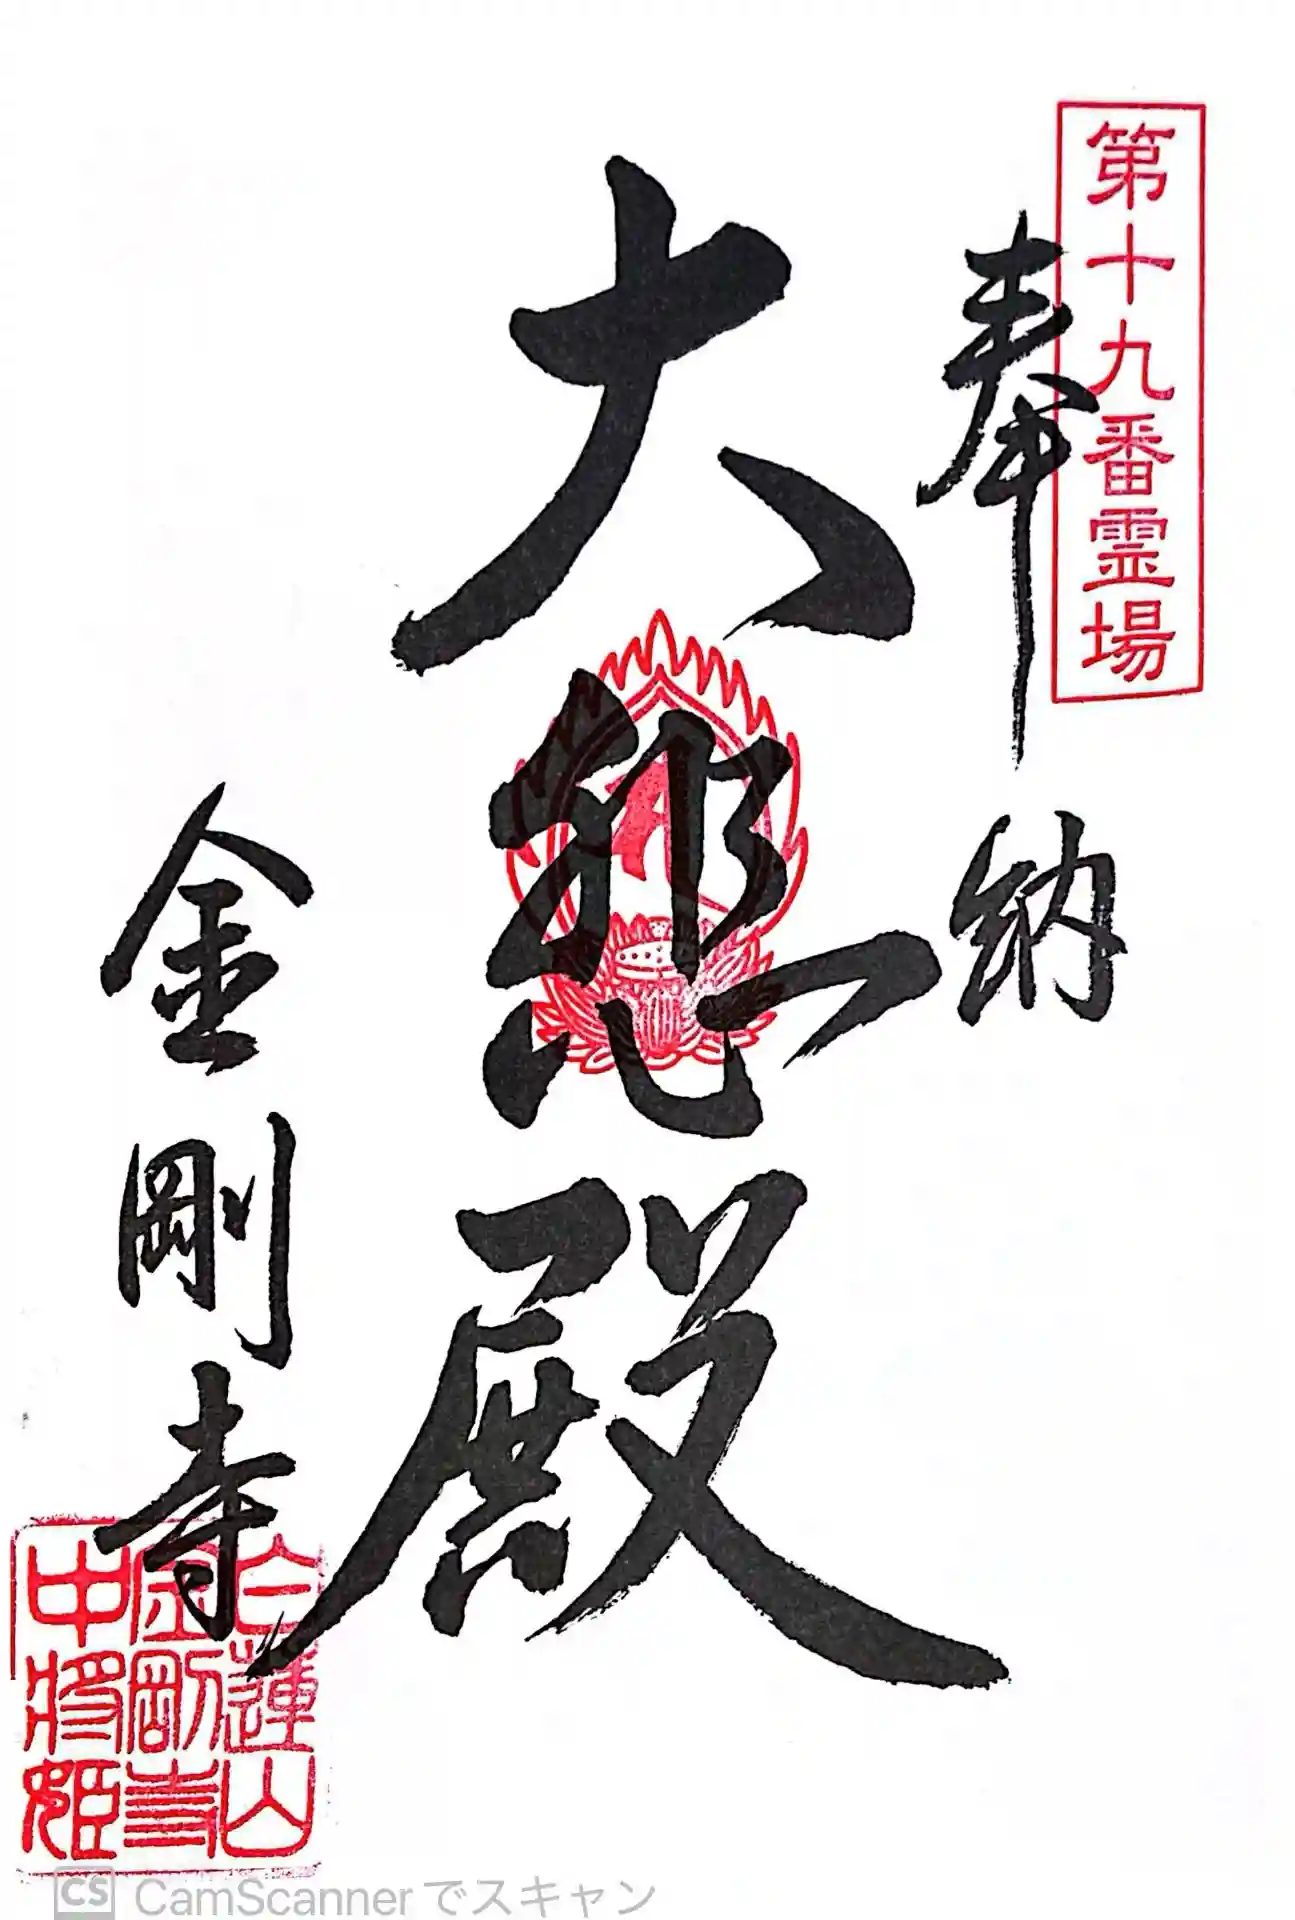 第十九番霊場
奉納
大悲殿
金剛寺
白蓮山
金剛寺
中将姫
CS CamScannerでスキャン